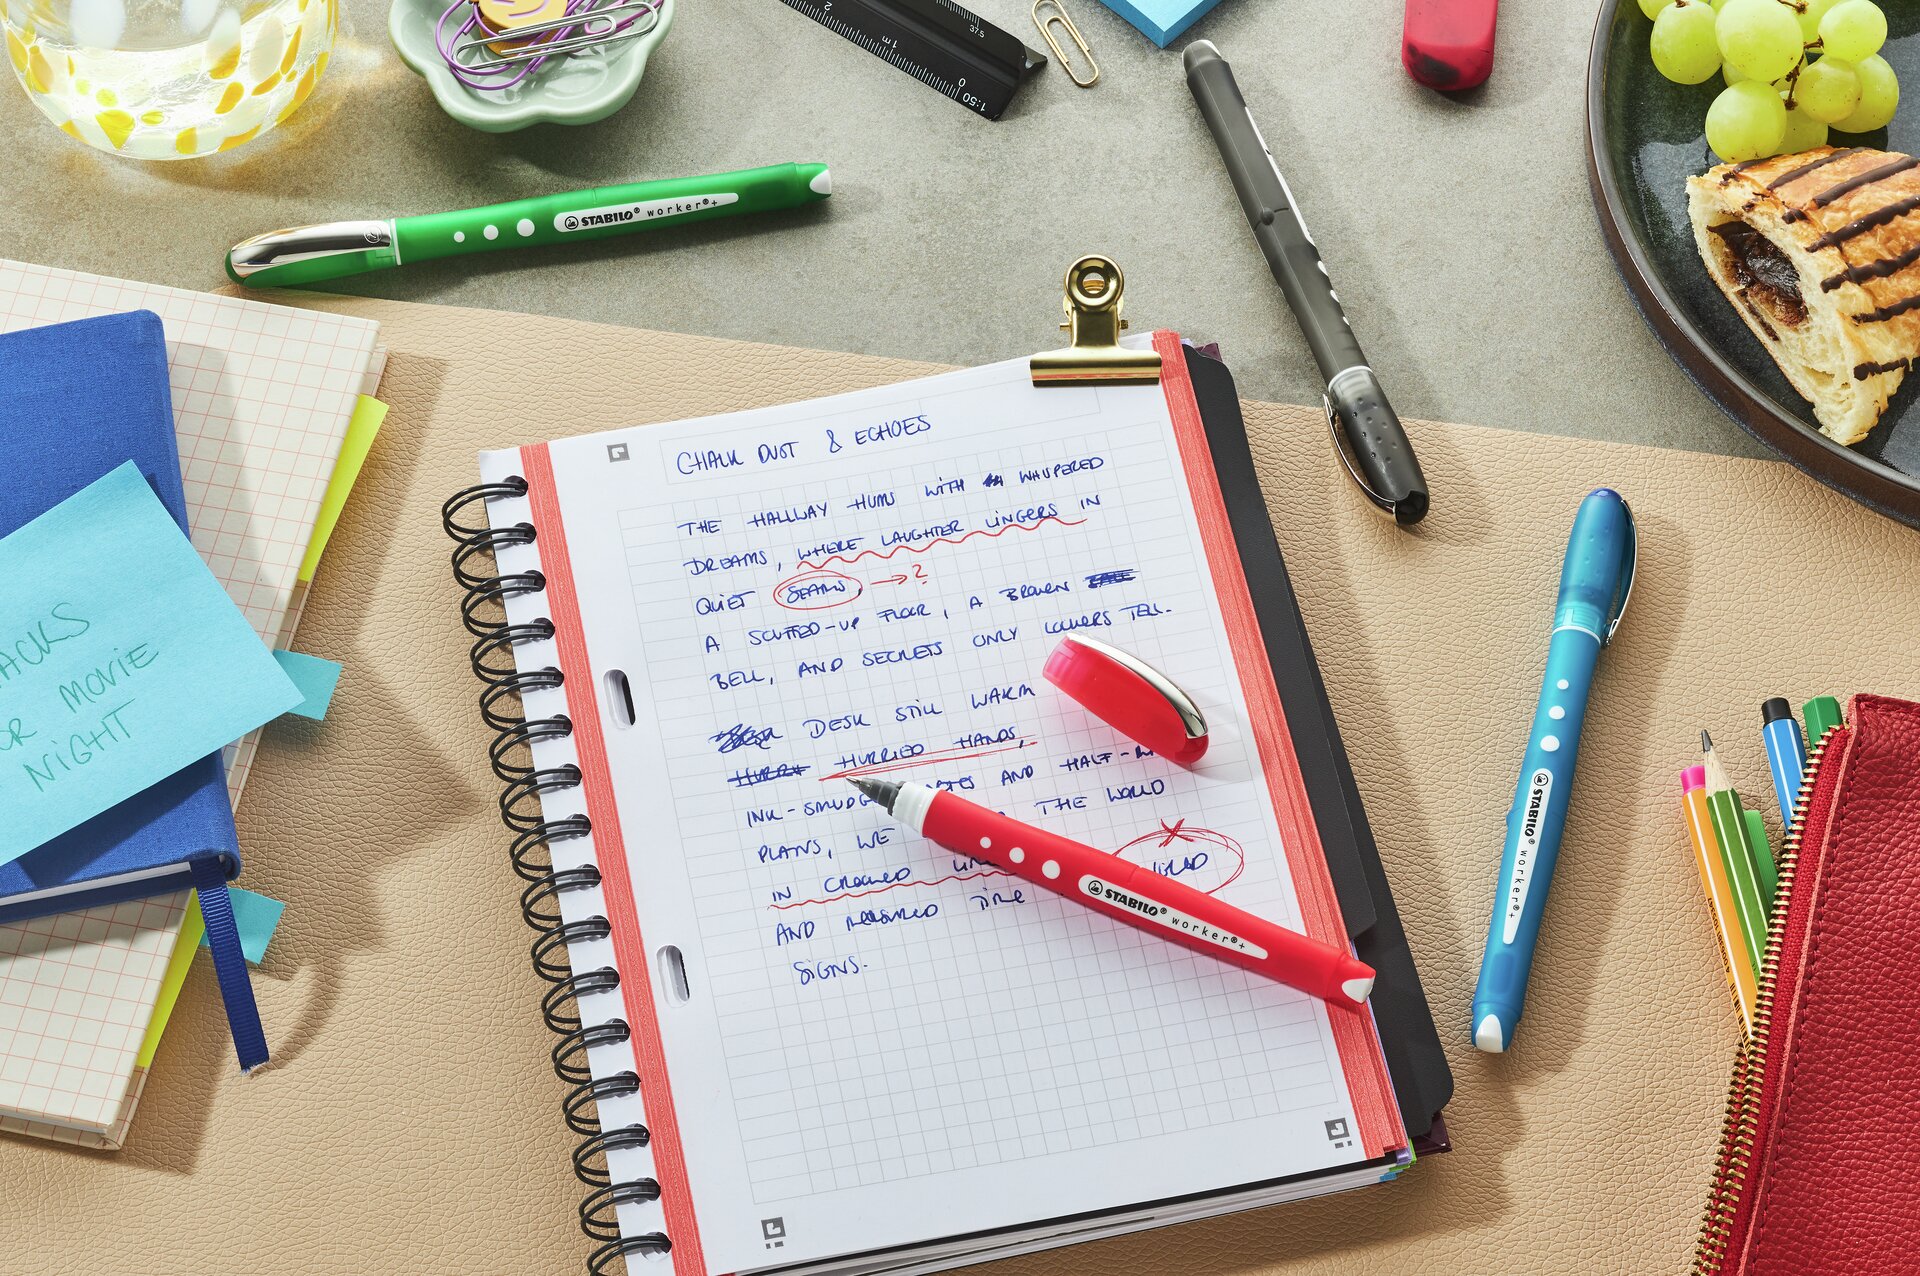 2
1 m
0
1:50
37.5
STABILO® worker®+
CHALK DUST & ECHOES
THE HALLWAY HUMS WITH WHISPERED
DREAMS, WHERE LAUGHTER LINGERS IN
QUIET SEAMS, →?
A SCUFFED-UP FLOOR, A BROKEN
BELL, AND SECRETS ONLY LOCKERS TELL.
DESK STILL WARM
HURRIED HANDS,
INK-SMUDGED AND HALF-
PLANS, WE THE WORLD
IN CROOKED
AND MEASURED TIME
SIGNS.
STABILO® worker®+
STABILO® worker®+
MOVIE
NIGHT